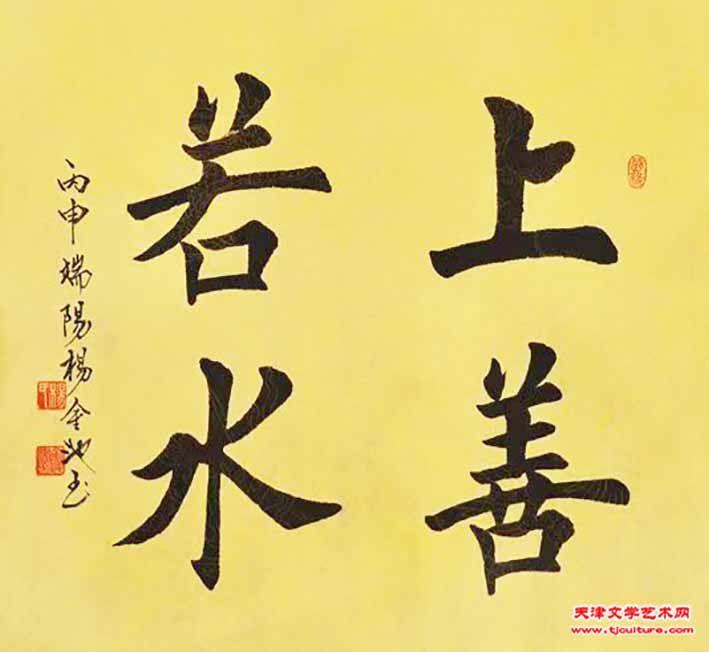 上善
若水
丙申端陽楊金池書
天津文学艺术网
www.tjculture.com